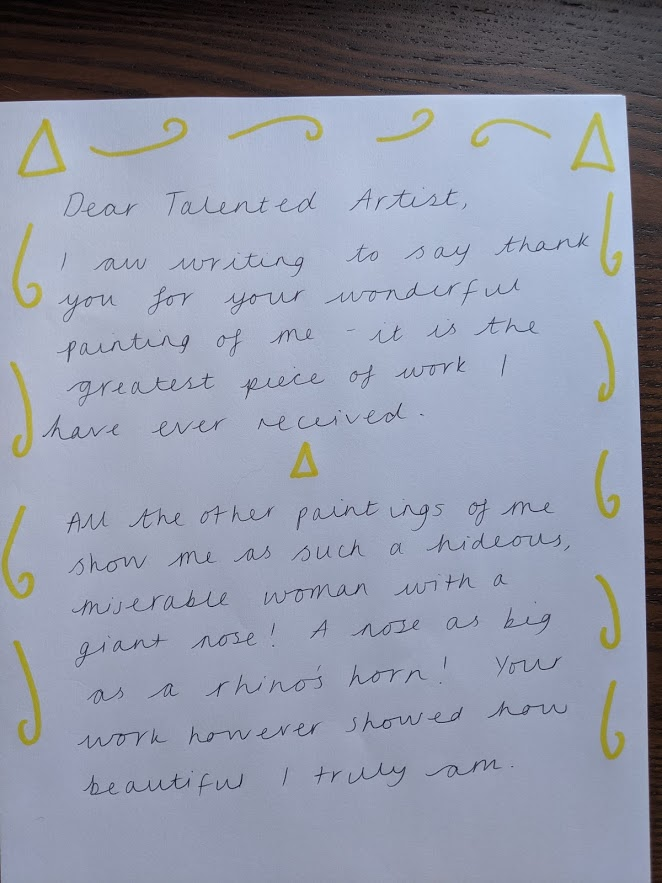 Dear Talented Artist,
I am writing to say thank
you for your wonderful
painting of me - it is the
greatest piece of work I
have ever received.
All the other paintings of me
show me as such a hideous,
miserable woman with a
giant nose! A nose as big
as a rhino's horn! Your
work however showed how
beautiful I truly am.